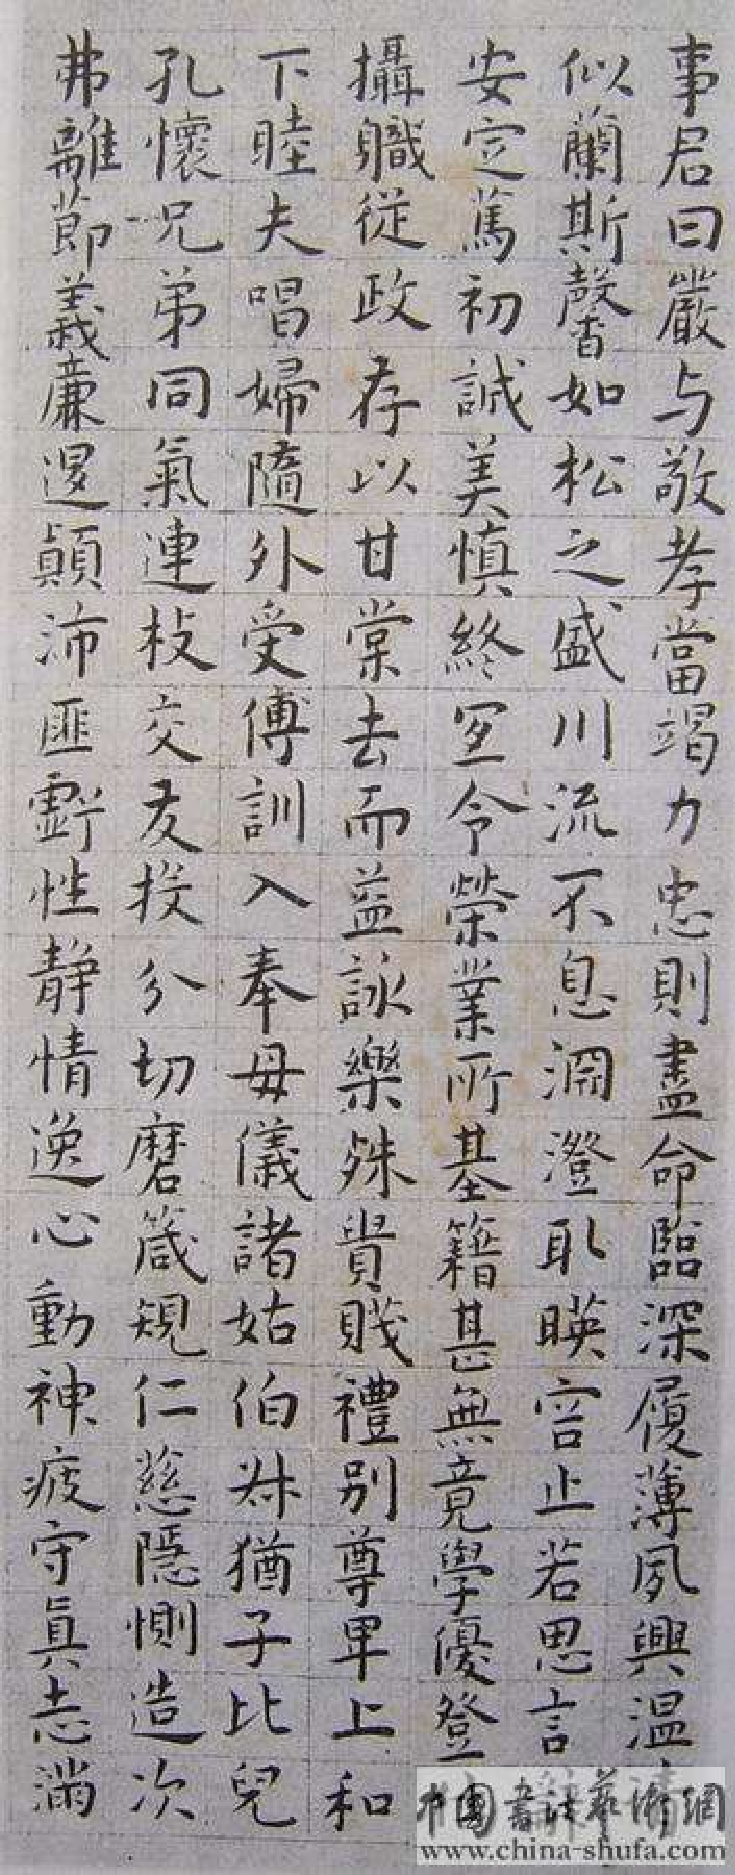 事君曰嚴与敬孝當竭力忠則盡命臨深履薄夙興温清
似蘭斯馨如松之盛川流不息淵澄取暎容止若思言
安定篤初誠美慎終宜令榮業所基籍甚無竟學優登
攝職從政存以甘棠去而益詠樂殊貴賤禮別尊卑上和
下睦夫唱婦隨外受傅訓入奉母儀諸姑伯叔猶子比兒
孔懷兄弟同氣連枝交友投分切磨箴規仁慈隱惻造次
弗離節義廉退顛沛匪虧性静情逸心動神疲守真志滿
中國書法藝術網
www.china-shufa.com